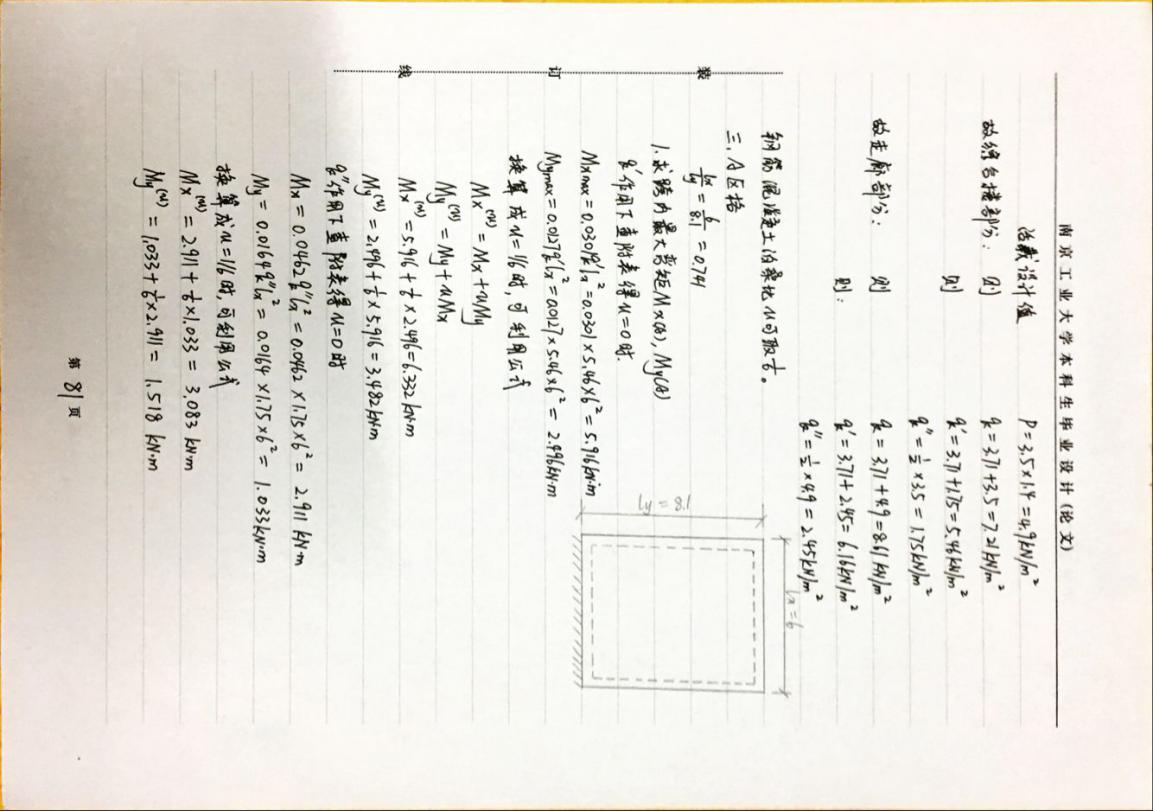 南京工业大学本科生毕业设计(论文)
活载设计值 P=3.5×1.4=4.9kN/m²
故综合楼部分: 则 q=3.71+3.5=7.21kN/m²
则 q'=3.71+1.75=5.46kN/m²
q''=½×3.5=1.75kN/m²
故走廊部分: 则 q=3.71+4.9=8.61kN/m²
则: q'=3.71+2.45=6.16kN/m²
q''=½×4.9=2.45kN/m²
钢筋混凝土泊桑比μ可取⅙。
三.A区格
lx/ly=6/8.1=0.741
1.求跨内最大弯矩Mx(A),My(A)
q'作用下查附表得μ=0时.
Mxmax=0.0301q'lx²=0.0301×5.46×6²=5.916kN·m
Mymax=0.0127q'lx²=0.0127×5.46×6²=2.496kN·m
换算成μ=1/6时,可利用公式
Mx⁽ᵘ⁾=Mx+uMy
My⁽ᵘ⁾=My+uMx
Mx⁽ᵘ⁾=5.916+⅙×2.496=6.332kN·m
My⁽ᵘ⁾=2.496+⅙×5.916=3.482kN·m
q''作用下查附表得μ=0时
Mx=0.0462q''lx²=0.0462×1.75×6²=2.911kN·m
My=0.0164q''lx²=0.0164×1.75×6²=1.033kN·m
换算成μ=1/6时,可利用公式
Mx⁽ᵘ⁾=2.911+⅙×1.033=3.083kN·m
My⁽ᵘ⁾=1.033+⅙×2.911=1.518kN·m
lx=6
ly=8.1
装
订
线
第81页